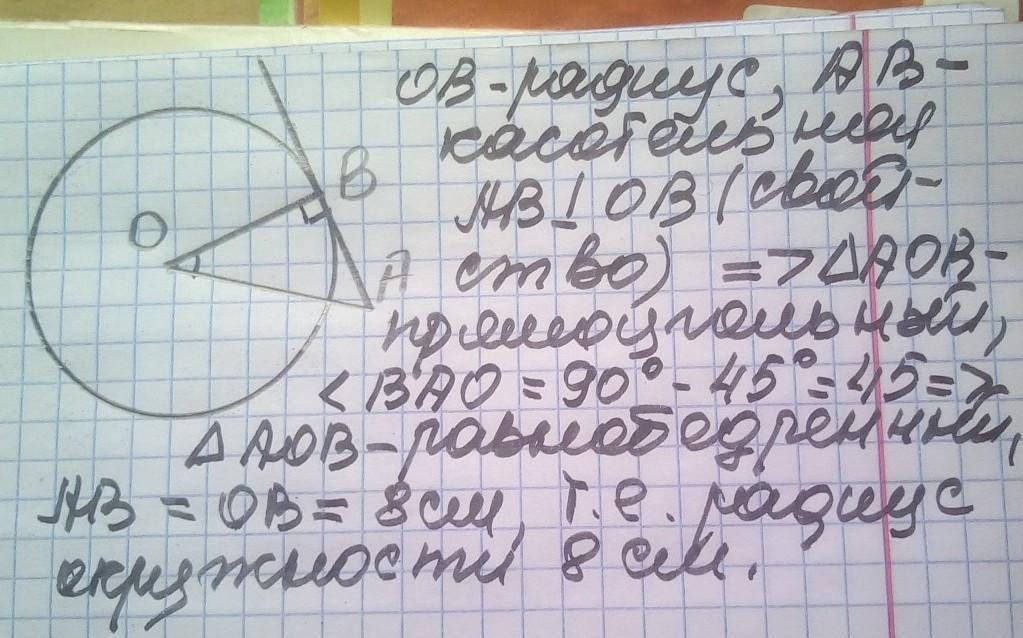 OB-радиус, AB-
касательная
AB⊥OB (свой-
ство) => ΔAOB-
прямоугольный,
<BAO = 90° - 45° = 45 =>
ΔAOB-равнобедренный,
AB = OB = 8см, т.е. радиус
окружности 8 см.
O
B
A